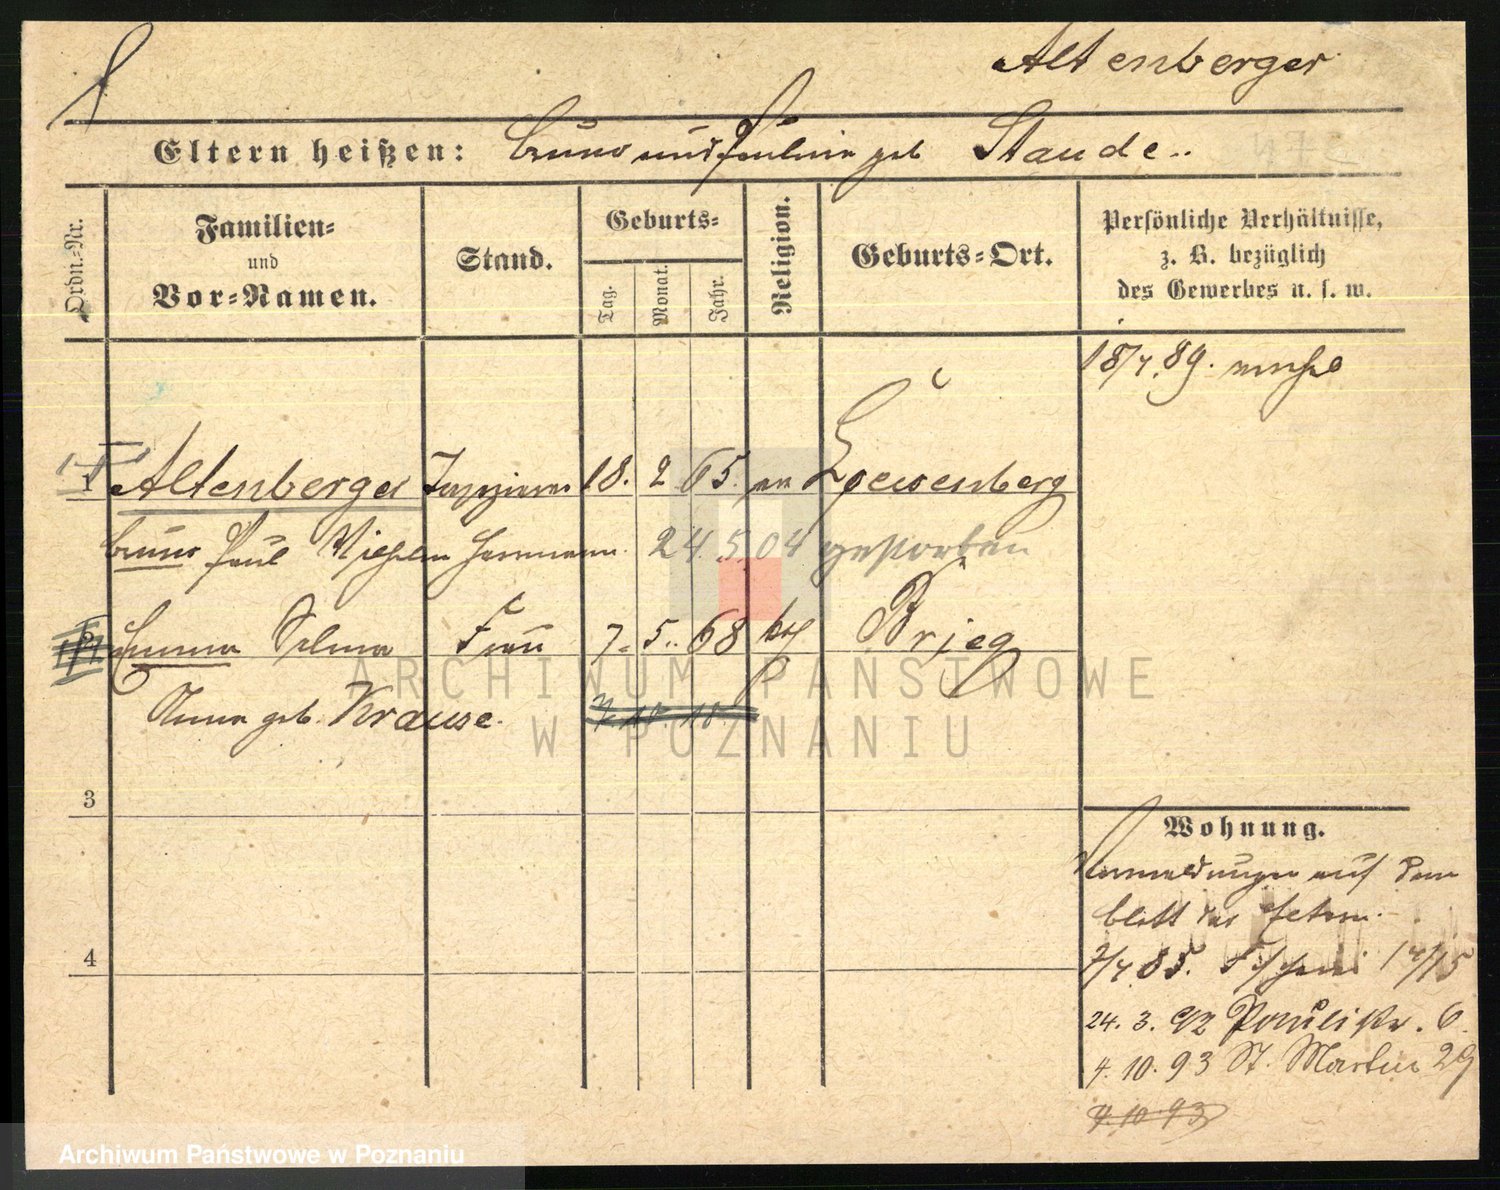 Altenberger
Eltern heißen: Bruno und Pauline geb Staude..
Ordn.-Nr.
Familien-
und
Vor-Namen.
Stand.
Geburts-
Tag.
Monat.
Jahr.
Religion.
Geburts-Ort.
Persönliche Verhältnisse,
z. B. bezüglich
des Gewerbes u. s. w.
18/7.89.
1 Altenberger 18. 2 65. ev Loewenberg
Bruno Paul Wilhelm Herrmann. 24.5.04 gestorben
2 Emma Selma Frau 7. 5. 68 kth Brieg
Anna geb. Krause.
7. 10. 10.
3
4
Wohnung.
Anmeldungen auf dem
blatt der Eltern.
7/7 85. 14/15
24. 3. 92 Paulistr. 6.
4. 10. 93 St. Martin 29
4.10.93
ARCHIWUM PAŃSTWOWE
W POZNANIU
Archiwum Państwowe w Poznaniu